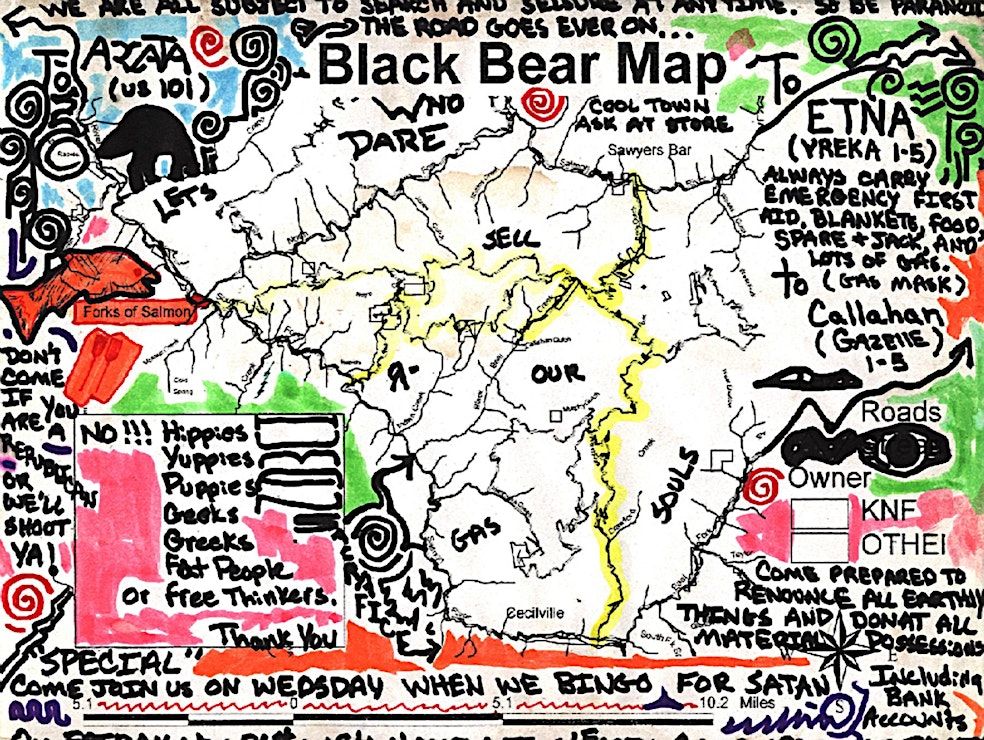 WE ARE ALL SUBJECT TO SEARCH AND SEIZURE AT ANYTIME. SO BE PARANOID
THE ROAD GOES EVER ON...
Black Bear Map
To
ARCATA
(US 101)
WHO
DARE
COOL TOWN
ASK AT STORE
Sawyers Bar
To
ETNA
(YREKA I-5)
ALWAYS CARRY
EMERGENCY FIRST
AID, BLANKETS, FOOD,
SPARE + JACK, AND
LOTS OF GAS.
(GAS MASK)
To
Callahan
(GAZELLE)
I-5
LETS
SELL
Forks of Salmon
DON'T
COME
IF YOU
ARE A
REPUBLICAN
OR
WE'LL
SHOOT
YA!
R-
OUR
SOULS
GAS
NO!!! Hippies
Yuppies
Puppies
Geeks
Greeks
Fat People
or Free Thinkers.
Thank You
SACRIFICES
Roads
Owner
KNF
OTHER
Cecilville
COME PREPARED TO
RENOUNCE ALL EARTHLY
THINGS AND DONAT ALL
MATERIAL POSSESSIONS
Including
BANK
Accounts
"SPECIAL"
COME JOIN US ON WEDSDAY WHEN WE BINGO FOR SATAN
5.1 0 5.1 10.2 Miles
S